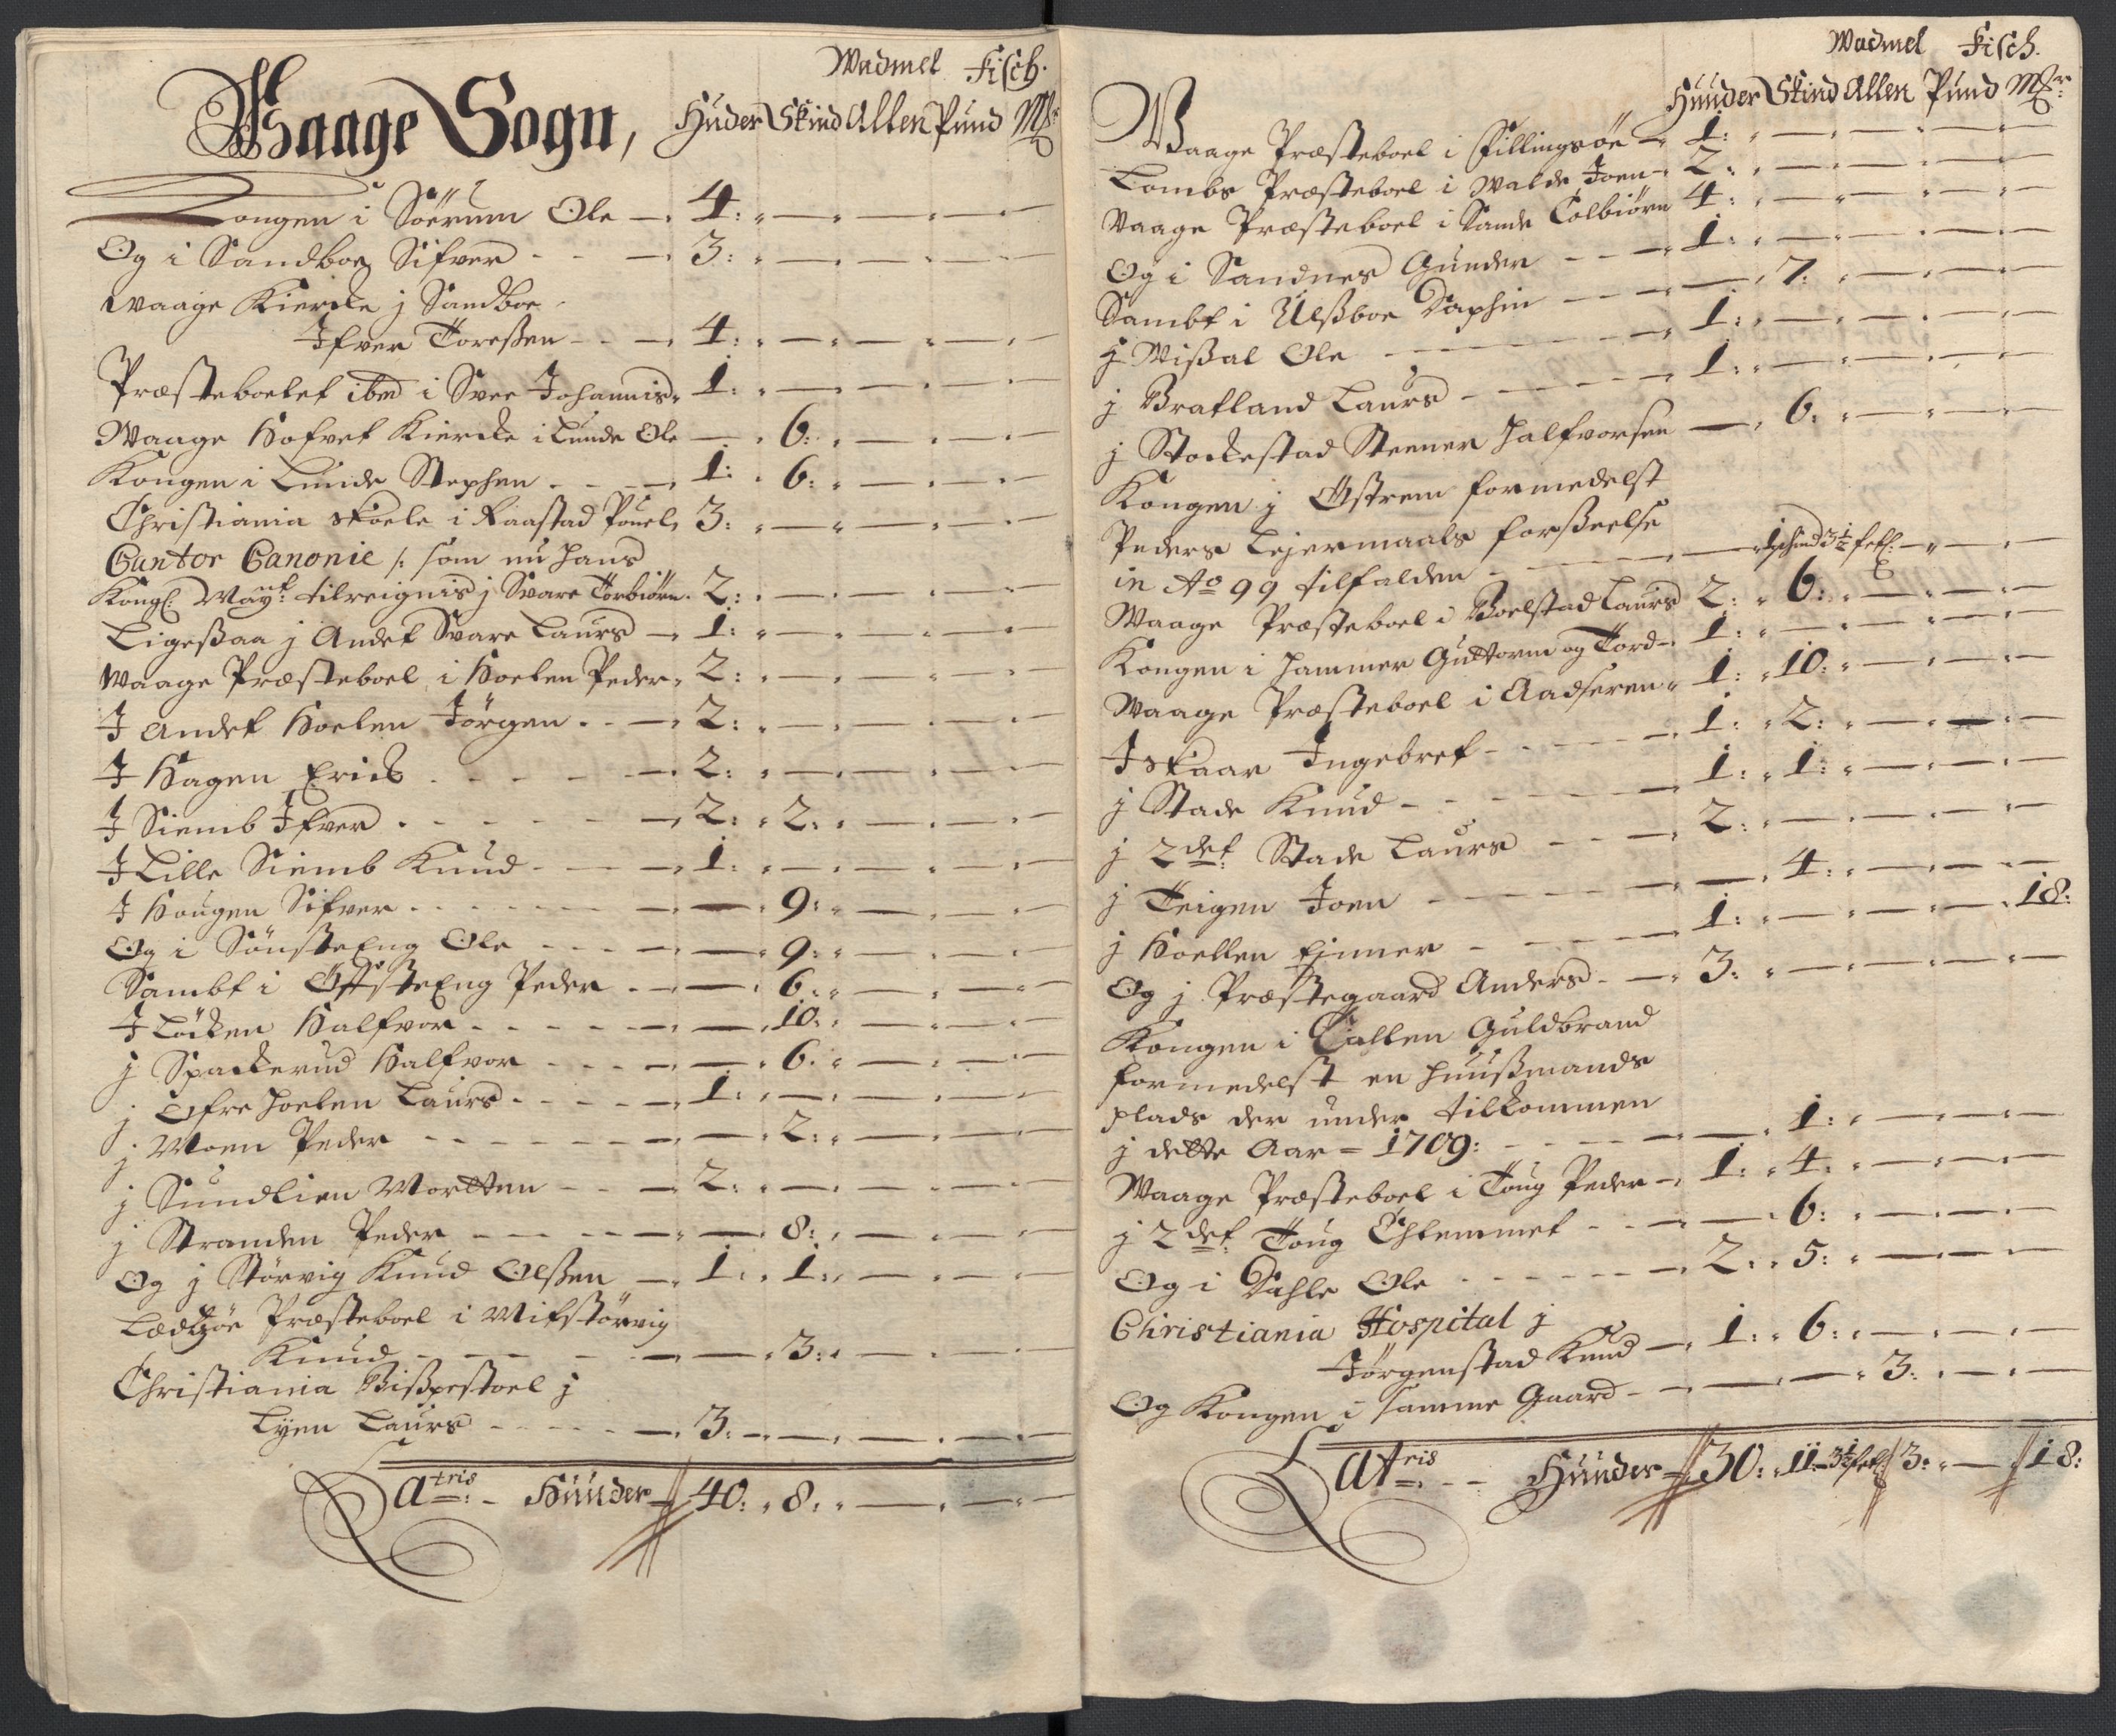 Wadmel Fisch.
Waage Sogn, Huder Skind Allen Pund Mk
Kongen i Söerum Ole — 4: — — — —
Og i Sandboe Sifver - - — 3: — — — —
Waage Kiercke j Sandboe
Ifver Toreßen - - — 4: — — — —
Præsteboelet ibm i Svee Johannis 1: — — — —
Waage Hofvet Kiercke i Lunde Ole — 6: — — —
Kongen i Lunde Stephen - - — 1: 6: — — —
Christiania skoele i Raastad Pouel 3: — — — —
Cantor Canonie /: som nu hans
Kongl: Mayt: tilreignis j Svare Torbiörn 2: — — — —
Ligeßaa j Andet Svare Laurs — 1: — — — —
Waage Præsteboel i Hoelen Peder 2: — — — —
I Andet Hoelen Jörgen - - — 2: — — — —
I Hagen Erick - - - — 2: — — — —
I Siemb Ifver - - - — 2: 2: — — —
I Lille Siemb Knud - - — 1: — — — —
I Hougen Sifver - - - — — 9: — — —
Og i SönsteEng Ole - - — — 9: — — —
Sambt i ÖfsteEng Peder - — — 6: — — —
I Löcken Halfvor - - - — — 10: — — —
j Spackerud Halfvor - - — — 6: — — —
j Öfre Hoelen Laurs - - — 1: — — — —
j Moen Peder - - - — — 2: — — —
j Sundlien Mortten - - — 2: — — — —
j Stranden Peder - - - — — 8: — — —
Og j Störvig Knud Olßen — 1: 1: — — —
Præsteboel i Mitstörvig
Knud - - - — — 3: — — —
Christiania Bißpestoel j
Lyen Laurs - - - — 3: — — — —
Latris - Huuder 40: 8: — — —
Wadmel Fisch.
Huuder Skind Allen Pund Mkr
Waage Præsteboel i Fillingsöe — 1: — — — —
Lombs Præsteboel i Walde Joen 2: — — — —
Waage Præsteboel i Sande Colbiörn 4: — — — —
Og i Sandnes Gunder - - — 1: — — — —
Sambt i Ulßboe Daphin - - — — 7: — — —
j Wißal Ole - - - — 1: — — — —
j Bratland Laurs - - - — 1: — — — —
j Stockestad Steener Halfvorsen — 6: — — —
Kongen j Östrem formedelst
Peders Lejermaals forßeelse
in Ao 99 tilfalden - - — — 1 skind 3½ fetl: — —
Waage Præsteboel i Boelstad Laurs 2: 6: — — —
Kongen i Hammer Guttorm og Tord 1: — — — —
Waage Præsteboel i Aadseren 1: 10: — — —
I Skaar Ingebret - - - — 1: 2: — — —
j Stade Knud - - - — 1: 1: — — —
j 2det Stade Laurs - - — 2: — — — —
j Teigen Joen - - - — — 4: — — —
j Hoellen Ejnner - - — 1: — — — 18:
Og j Præstegaard Anders - — 3: — — — —
Kongen i Callen Guldbrand
formedelst en huußmands
plads der under tilkommen
j dette Aar = 1709: - - — — 1: — — —
Waage Præsteboel i Toug Peder — 1: 4: — — —
j 2det Toug Chlemmet - - — — 6: — — —
Og i Dahle Ole - - - — 2: 5: — — —
Christiania Hospital j
Jörgenstad Knud — 1: 6: — — —
Og Kongen i samme Gaard - — — — 3: — —
Latris - - Huuder 30: 11: 3½ fetl: 3: — 18: